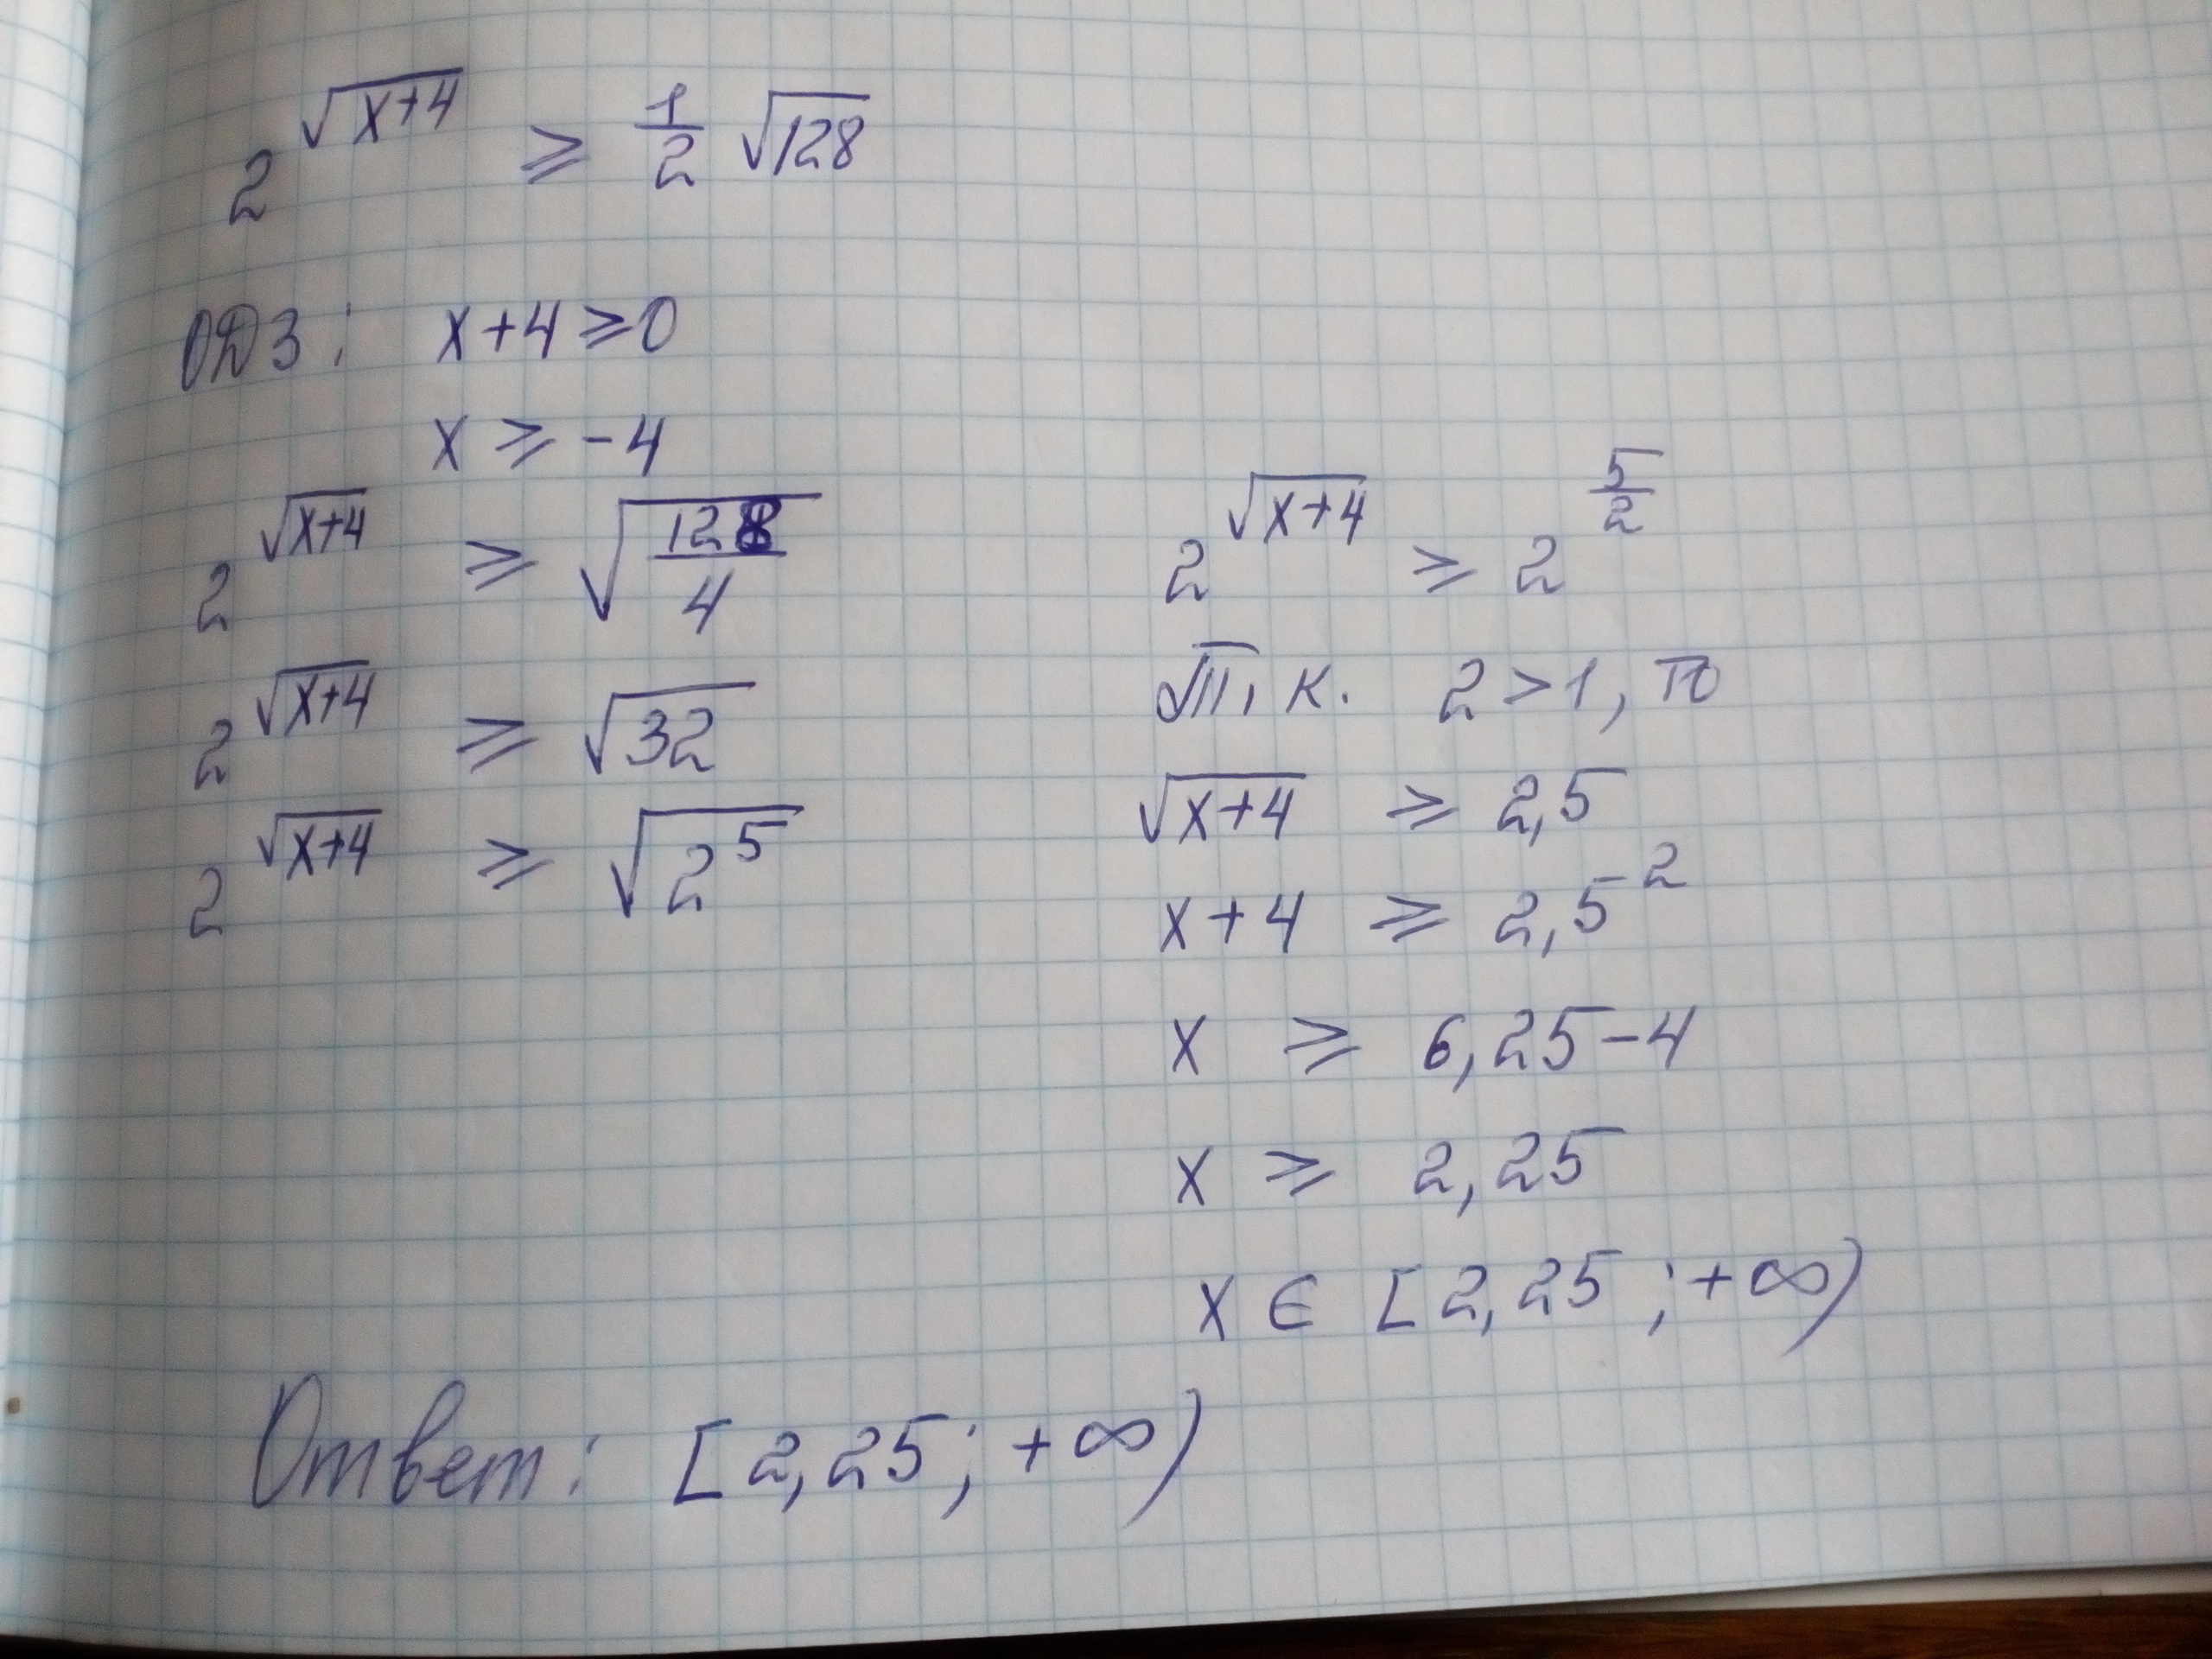 2^√(x+4) ⩾ 1/2 √128
ОДЗ: x+4 ⩾ 0
x ⩾ -4
2^√(x+4) ⩾ √(128/4)
2^√(x+4) ⩾ √32
2^√(x+4) ⩾ √(2^5)
2^√(x+4) ⩾ 2^(5/2)
Т.к. 2 > 1, то
√(x+4) ⩾ 2,5
x+4 ⩾ 2,5^2
x ⩾ 6,25-4
x ⩾ 2,25
x ∈ [2,25; +∞)
Ответ: [2,25; +∞)